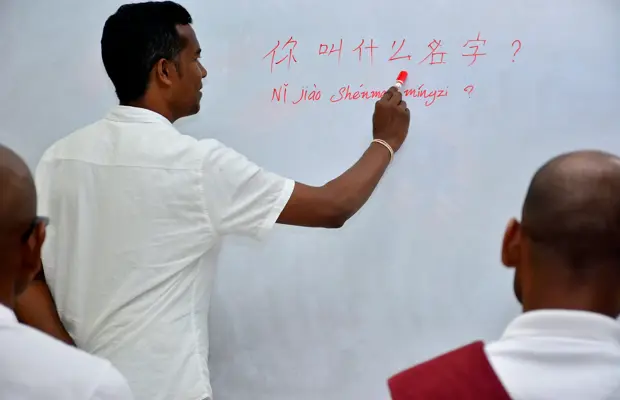 你叫什么名字?
Nǐ jiào shénme míngzi?